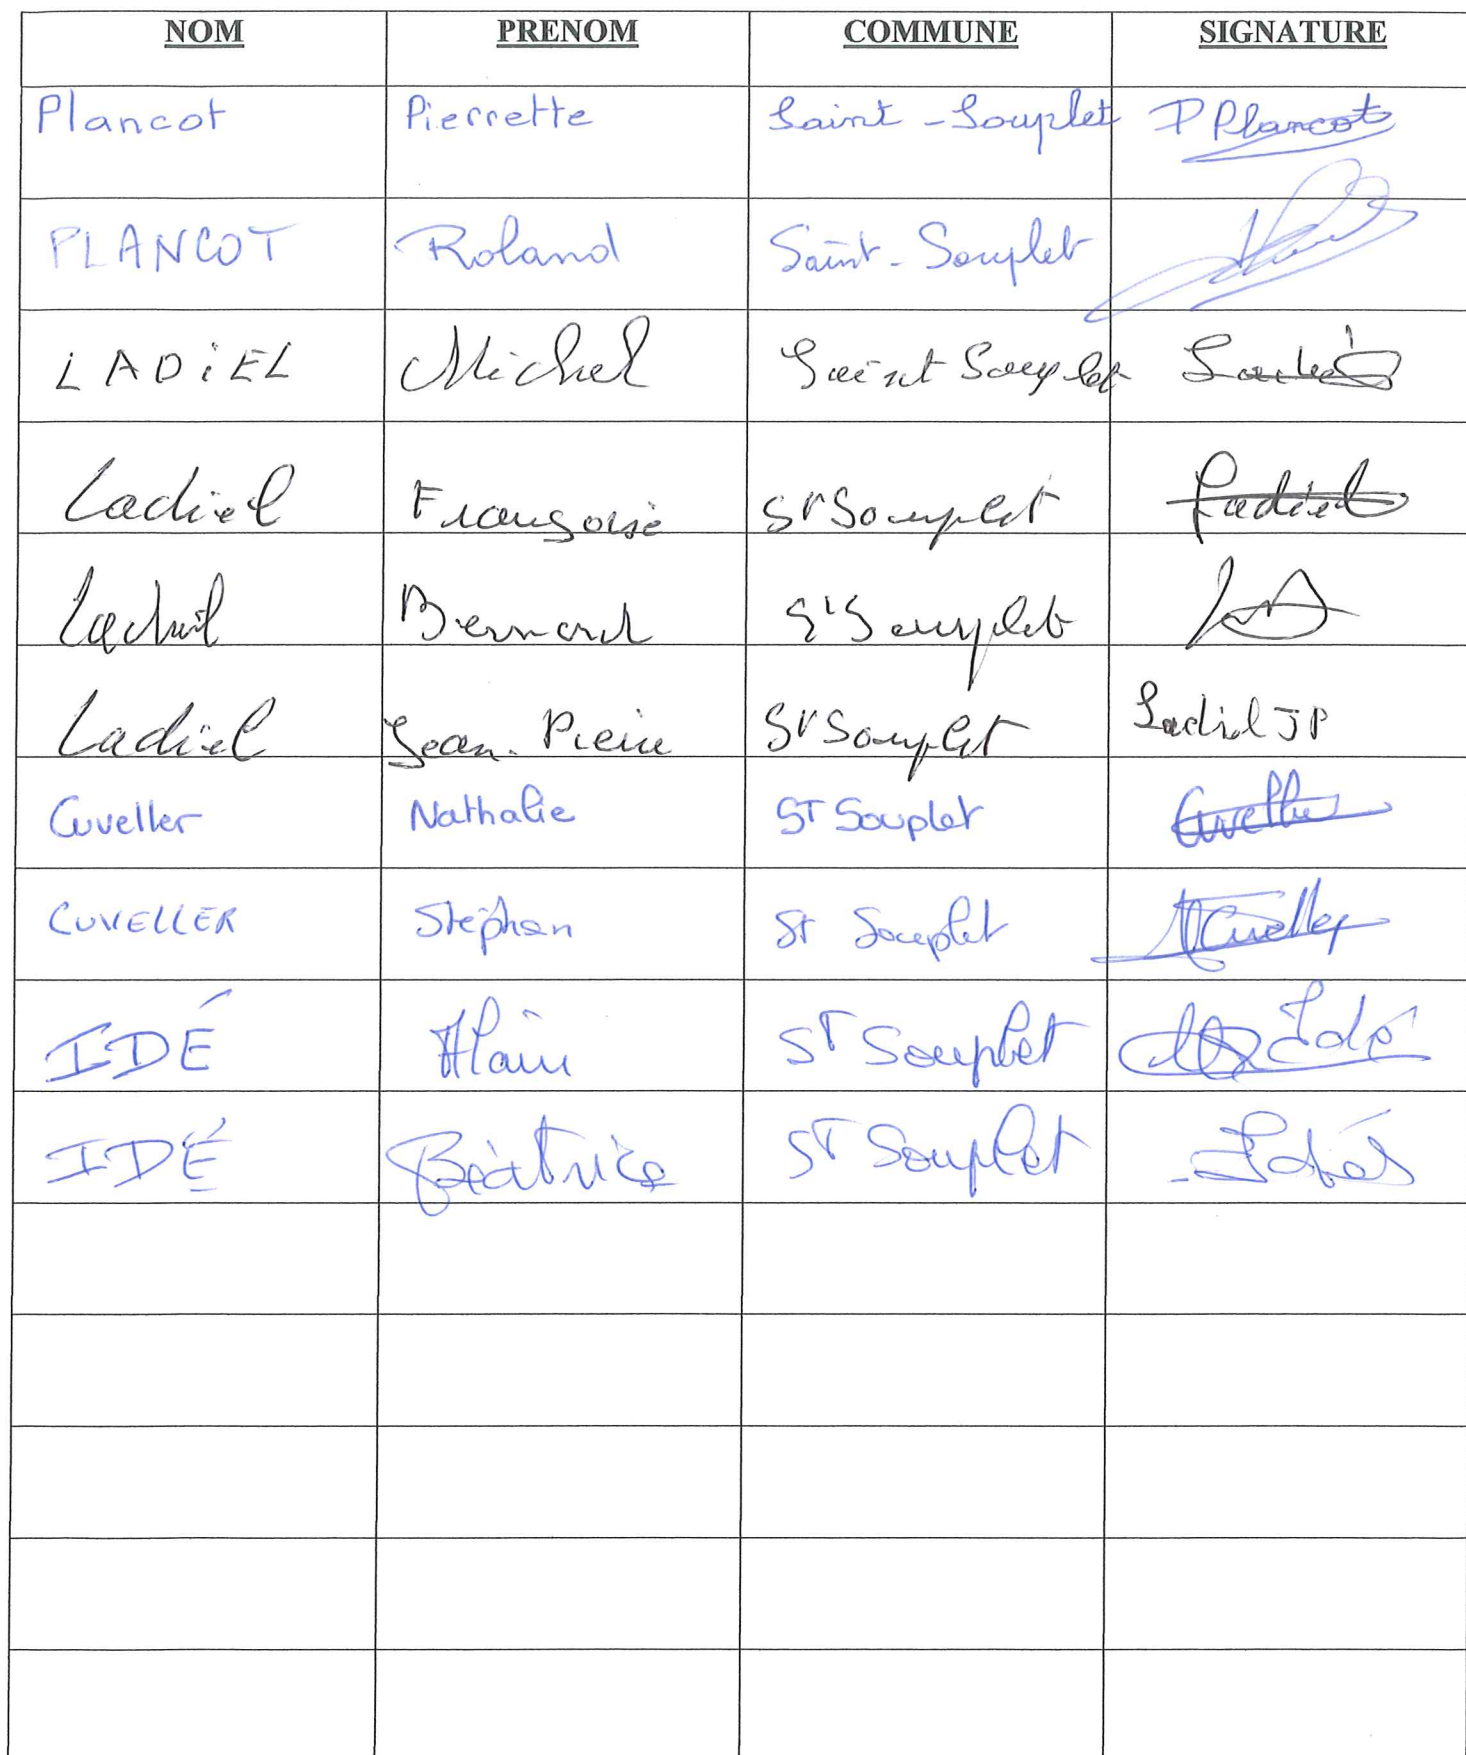 NOM PRENOM COMMUNE SIGNATURE
Plancot Pierrette Saint-Souplet P Plancot
PLANCOT Roland Saint-Souplet
LADiEL Michel Saint Souplet
Ladiel Françoise St Souplet Ladiel
Ladiel Bernard St Souplet
Ladiel Jean-Pierre St Souplet Ladiel JP
Cuveller Nathalie ST Souplet Cuveller
CUVELLER Stéphan St Souplet Cuveller
IDÉ Alain ST Souplet Idé
IDÉ Béatrice ST Souplet Idé